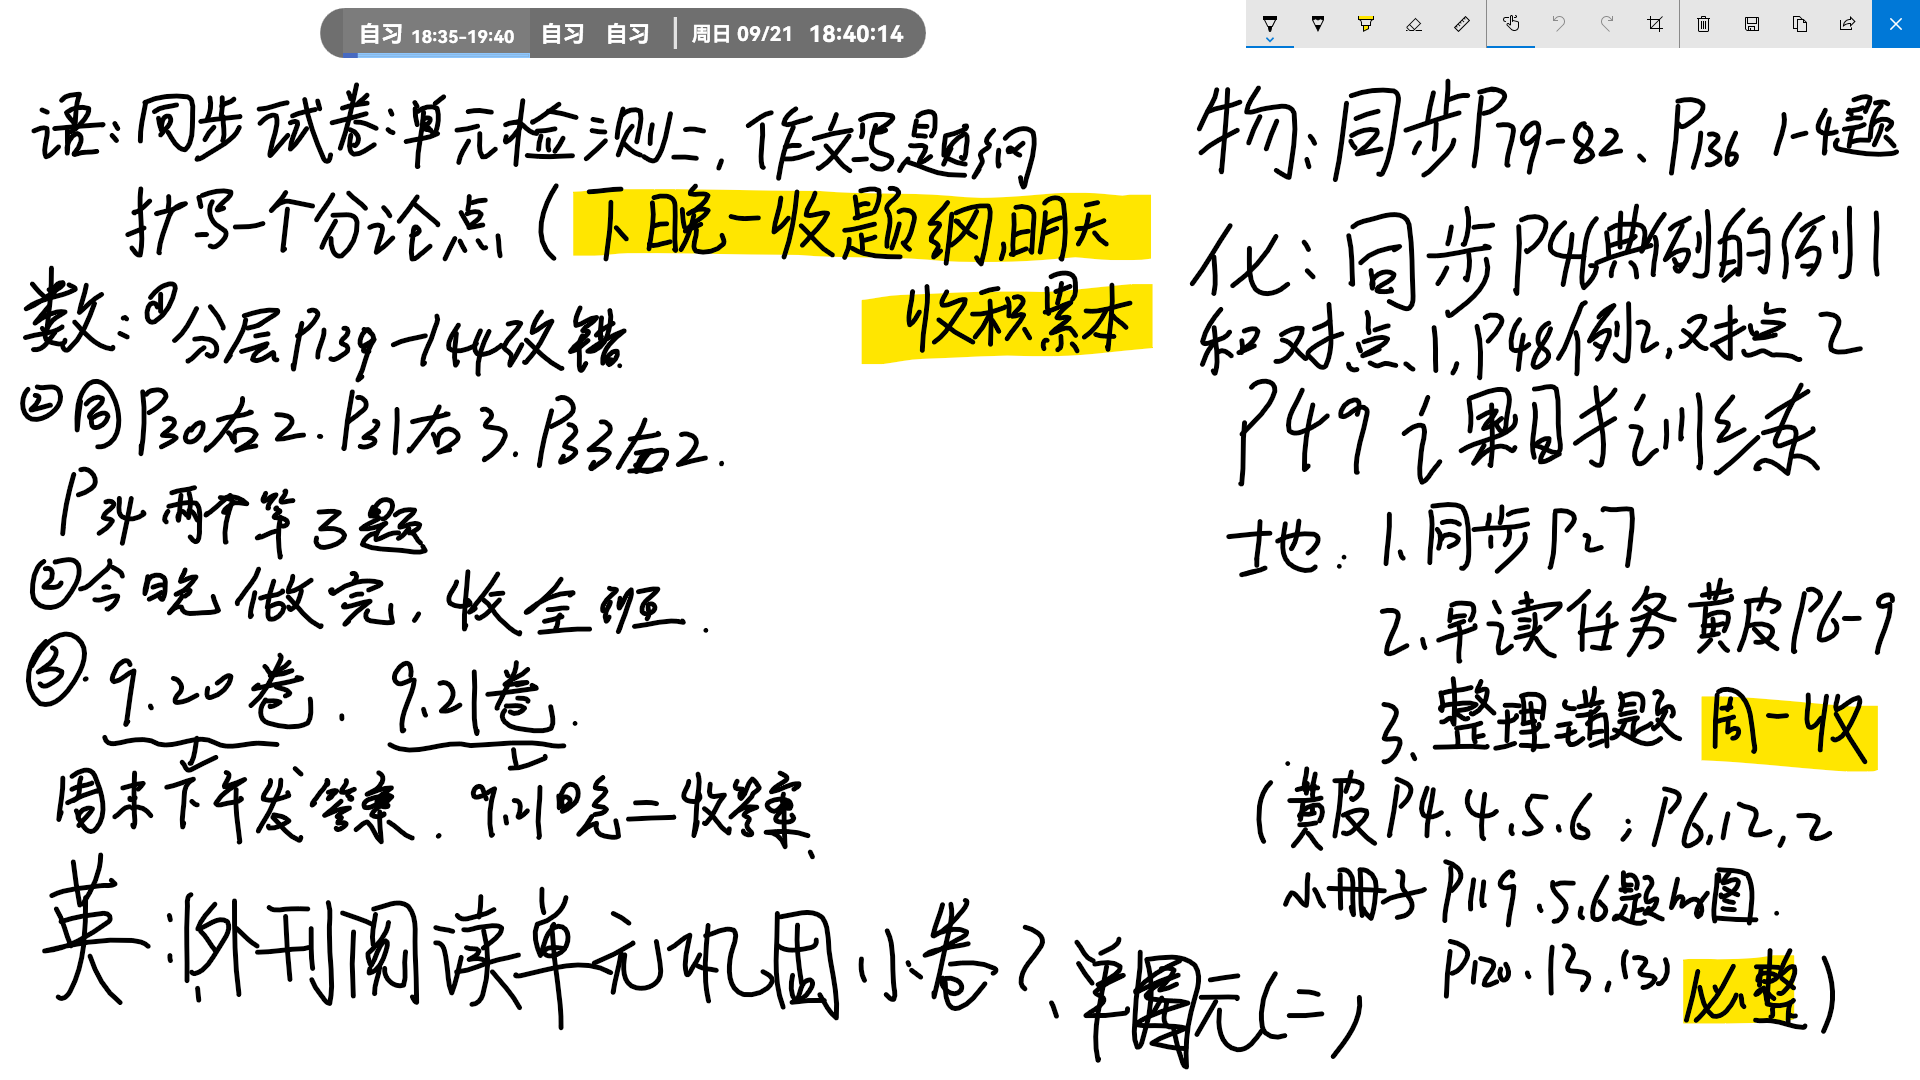 自习 18:35-19:40 自习 自习 周日 09/21 18:40:14
语:同步试卷:单元检测二,作文写题纲
抄写一个分论点(下晚一收题纲,明天
收积累本
数:①分层P139-144改错.
②同P30右2.P31右3.P33右2.
P34两个第3题
②今晚做完,收全班.
③.9.20卷.9.21卷.
周末下午发答案.9.21日晚二收答案.
英:1外刊阅读单元巩固小卷2、单元(二)
物:同步P79-82、P136 1-4题
化:同步P46典例的例1
和对点、1,P48例2,对点2
P49 课时训练
地:1、同步P27
2、早读任务黄皮P6-9
3、整理错题 周一收
(黄皮P4.4,5.6;P6,12,2
小册子P119.5,6题的图.
P120.13,(3)必整)